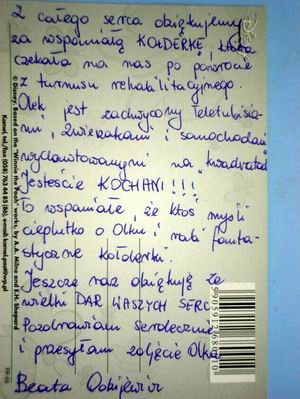 Z całego serca dziękujemy
za wspaniałą KOŁDERKĘ, która
czekała na nas po powrocie
z turnusu rehabilitacyjnego.
Olek jest zachwycony Teletubisia-
mi, zwierzakami i samochodami
wyhaftowanymi na "kwadratach"
Jesteście KOCHANI!!!
To wspaniałe, że ktoś myśli
cieplutko o Olku i robi fanta-
styczne kołderki.
Jeszcze raz dziękuję za
wielki DAR WASZYCH SERC
Pozdrawiam serdecznie
i przesyłam zdjęcie Olka
Beata
© Disney. Based on the "Winnie the Pooh" works, by A.A. Milne and E.H. Shepard
Kamel, tel./fax (058) 763 44 85 (86), e-mail: kamel.post@wp.pl
5905912680010